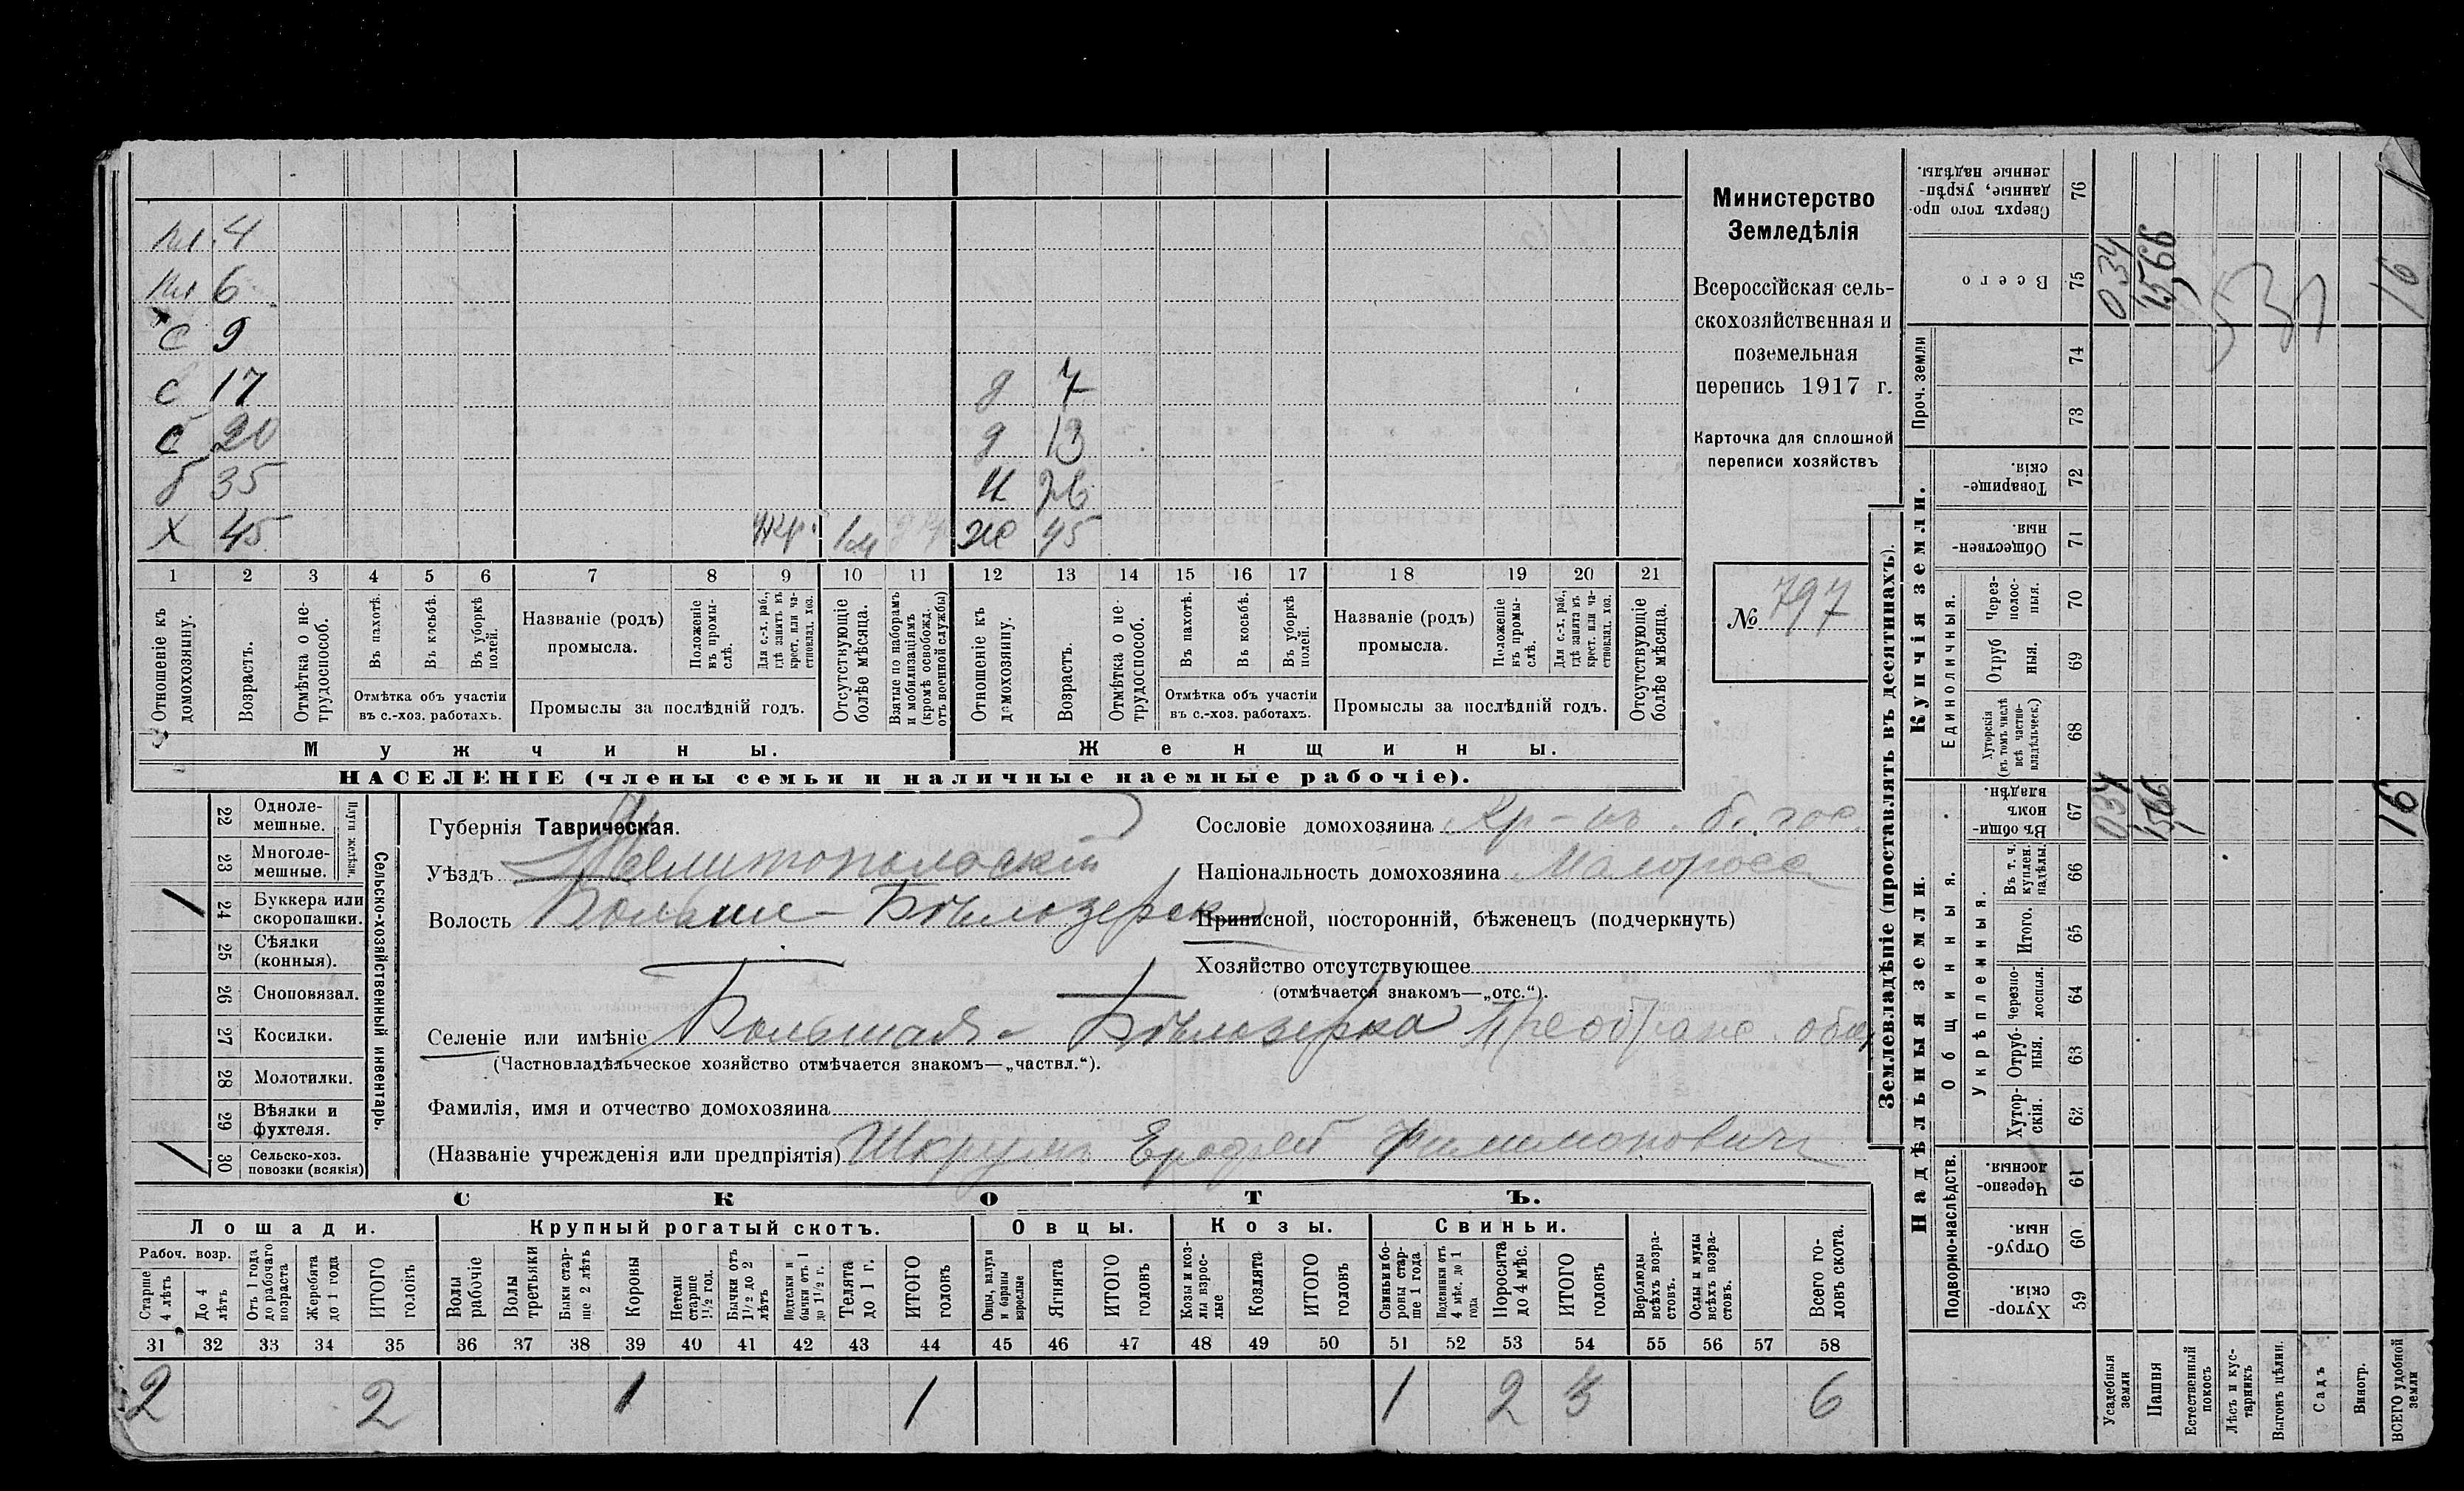 вн. 4
вн 6
с 9
с 17
д 7
с 20
д 13
б 35
н 26
х 45
1м
же 45
1 2 3 4 5 6 7 8 9 10 11 12 13 14 15 16 17 18 19 20 21
Отношеніе къ домохозяину.
Возрастъ.
Отмѣтка о нетрудоспособ.
Въ пахотѣ.
Въ косьбѣ.
Въ уборкѣ полей.
Отмѣтка объ участіи
въ с.-хоз. работахъ.
Названіе (родъ)
промысла.
Положеніе въ промыслѣ.
Для с.-х. раб., гдѣ занятъ въ крест. или частновлад. хоз.
Промыслы за послѣдній годъ.
Отсутствующіе болѣе мѣсяца.
Взятые по наборамъ и мобилизаціямъ (кромѣ освобожд. отъ военной службы)
Отношеніе къ домохозяину.
Возрастъ.
Отмѣтка о нетрудоспособ.
Въ пахотѣ.
Въ косьбѣ.
Въ уборкѣ полей.
Отмѣтка объ участіи
въ с.-хоз. работахъ.
Названіе (родъ)
промысла.
Положеніе въ промыслѣ.
Для с.-х. раб., гдѣ занята въ крест. или частновлад. хоз.
Промыслы за послѣдній годъ.
Отсутствующіе болѣе мѣсяца.
Мужчины.
Женщины.
НАСЕЛЕНІЕ (члены семьи и наличные наемные рабочіе).
Министерство
Земледѣлія
Всероссійская сель-
скохозяйственная и
поземельная
перепись 1917 г.
Карточка для сплошной
переписи хозяйствъ
№ 797
22 Одноле-
мешные.
23 Многоле-
мешные.
Плуги желѣзн.
1 24 Буккера или
скоропашки.
25 Сѣялки
(конныя).
26 Сноповязал.
27 Косилки.
28 Молотилки.
29 Вѣялки и
фухтеля.
1 30 Сельско-хоз.
повозки (всякія)
Сельско-хозяйственный инвентарь.
Губернія Таврическая.
Уѣздъ Мелитопольскій
Волость Больше-Бѣлозерск
Селеніе или имѣніе Большая-Бѣлозерка Преображ. общ.
(Частновладѣльческое хозяйство отмѣчается знакомъ—„частвл.“).
Фамилія, имя и отчество домохозяина
(Названіе учрежденія или предпріятія) Шкрумъ Ерофей Филимоновичъ
Сословіе домохозяина Кр-нъ. б. гос.
Національность домохозяина Малоросс
Приписной, посторонній, бѣженецъ (подчеркнуть)
Хозяйство отсутствующее
(отмѣчается знакомъ—„отс.“).
СКОТЪ.
Лошади.
Крупный рогатый скотъ.
Овцы.
Козы.
Свиньи.
Рабоч. возр.
Старше 4 лѣтъ
До 4 лѣтъ
Отъ 1 года до рабочаго возраста
Жеребята до 1 года
ИТОГО головъ
Волы рабочіе
Волы третьяки
Быки старше 2 лѣтъ
Коровы
Нетели старше 1½ год.
Бычки отъ 1½ до 2 лѣтъ
Подтелки и бычки отъ 1 до 1½ г.
Телята до 1 г.
ИТОГО головъ
Овцы, валухи и бараны взрослые
Ягнята
ИТОГО головъ
Козы и козлы взрослые
Козлята
ИТОГО головъ
Свиньи и боровы старше 1 года
Подсвинки отъ 4 мѣс. до 1 года
Поросята до 4 мѣс.
ИТОГО головъ
Верблюды всѣхъ возрастовъ.
Ослы и мулы всѣхъ возрастовъ.
Всего головъ скота.
31 32 33 34 35 36 37 38 39 40 41 42 43 44 45 46 47 48 49 50 51 52 53 54 55 56 57 58
2 2 1 1 1 2 3 6
Землевладѣніе (проставлять въ десятинахъ).
Надѣльныя земли.
Купчія земли.
Проч. земли
Подворно-наслѣдств.
Общинныя.
Укрѣпленныя.
Единоличныя.
Сверхъ того проданные, укрѣпленные надѣлы. 76
Всего 75 034 15,66 16
74
73
Товарищескія. 72
Общественныя. 71
Черезполосныя. 70
Отрубныя. 69
Хуторскія (въ томъ числѣ всѣ частновладѣльческ.) 68
Въ общинномъ владѣн. 67 034 15,66 16
Въ т. ч. куплен. надѣлы. 66
Итого. 65
Черезполосныя. 64
Отрубныя. 63
Хуторскія. 62
Черезполосныя. 61
Отрубныя. 60
Хуторскія. 59
Усадебныя земли
Пашня
Естественный покосъ
Лѣсъ и кустарникъ
Выгонъ цѣлин.
Садъ
Виногр.
ВСЕГО удобной земли